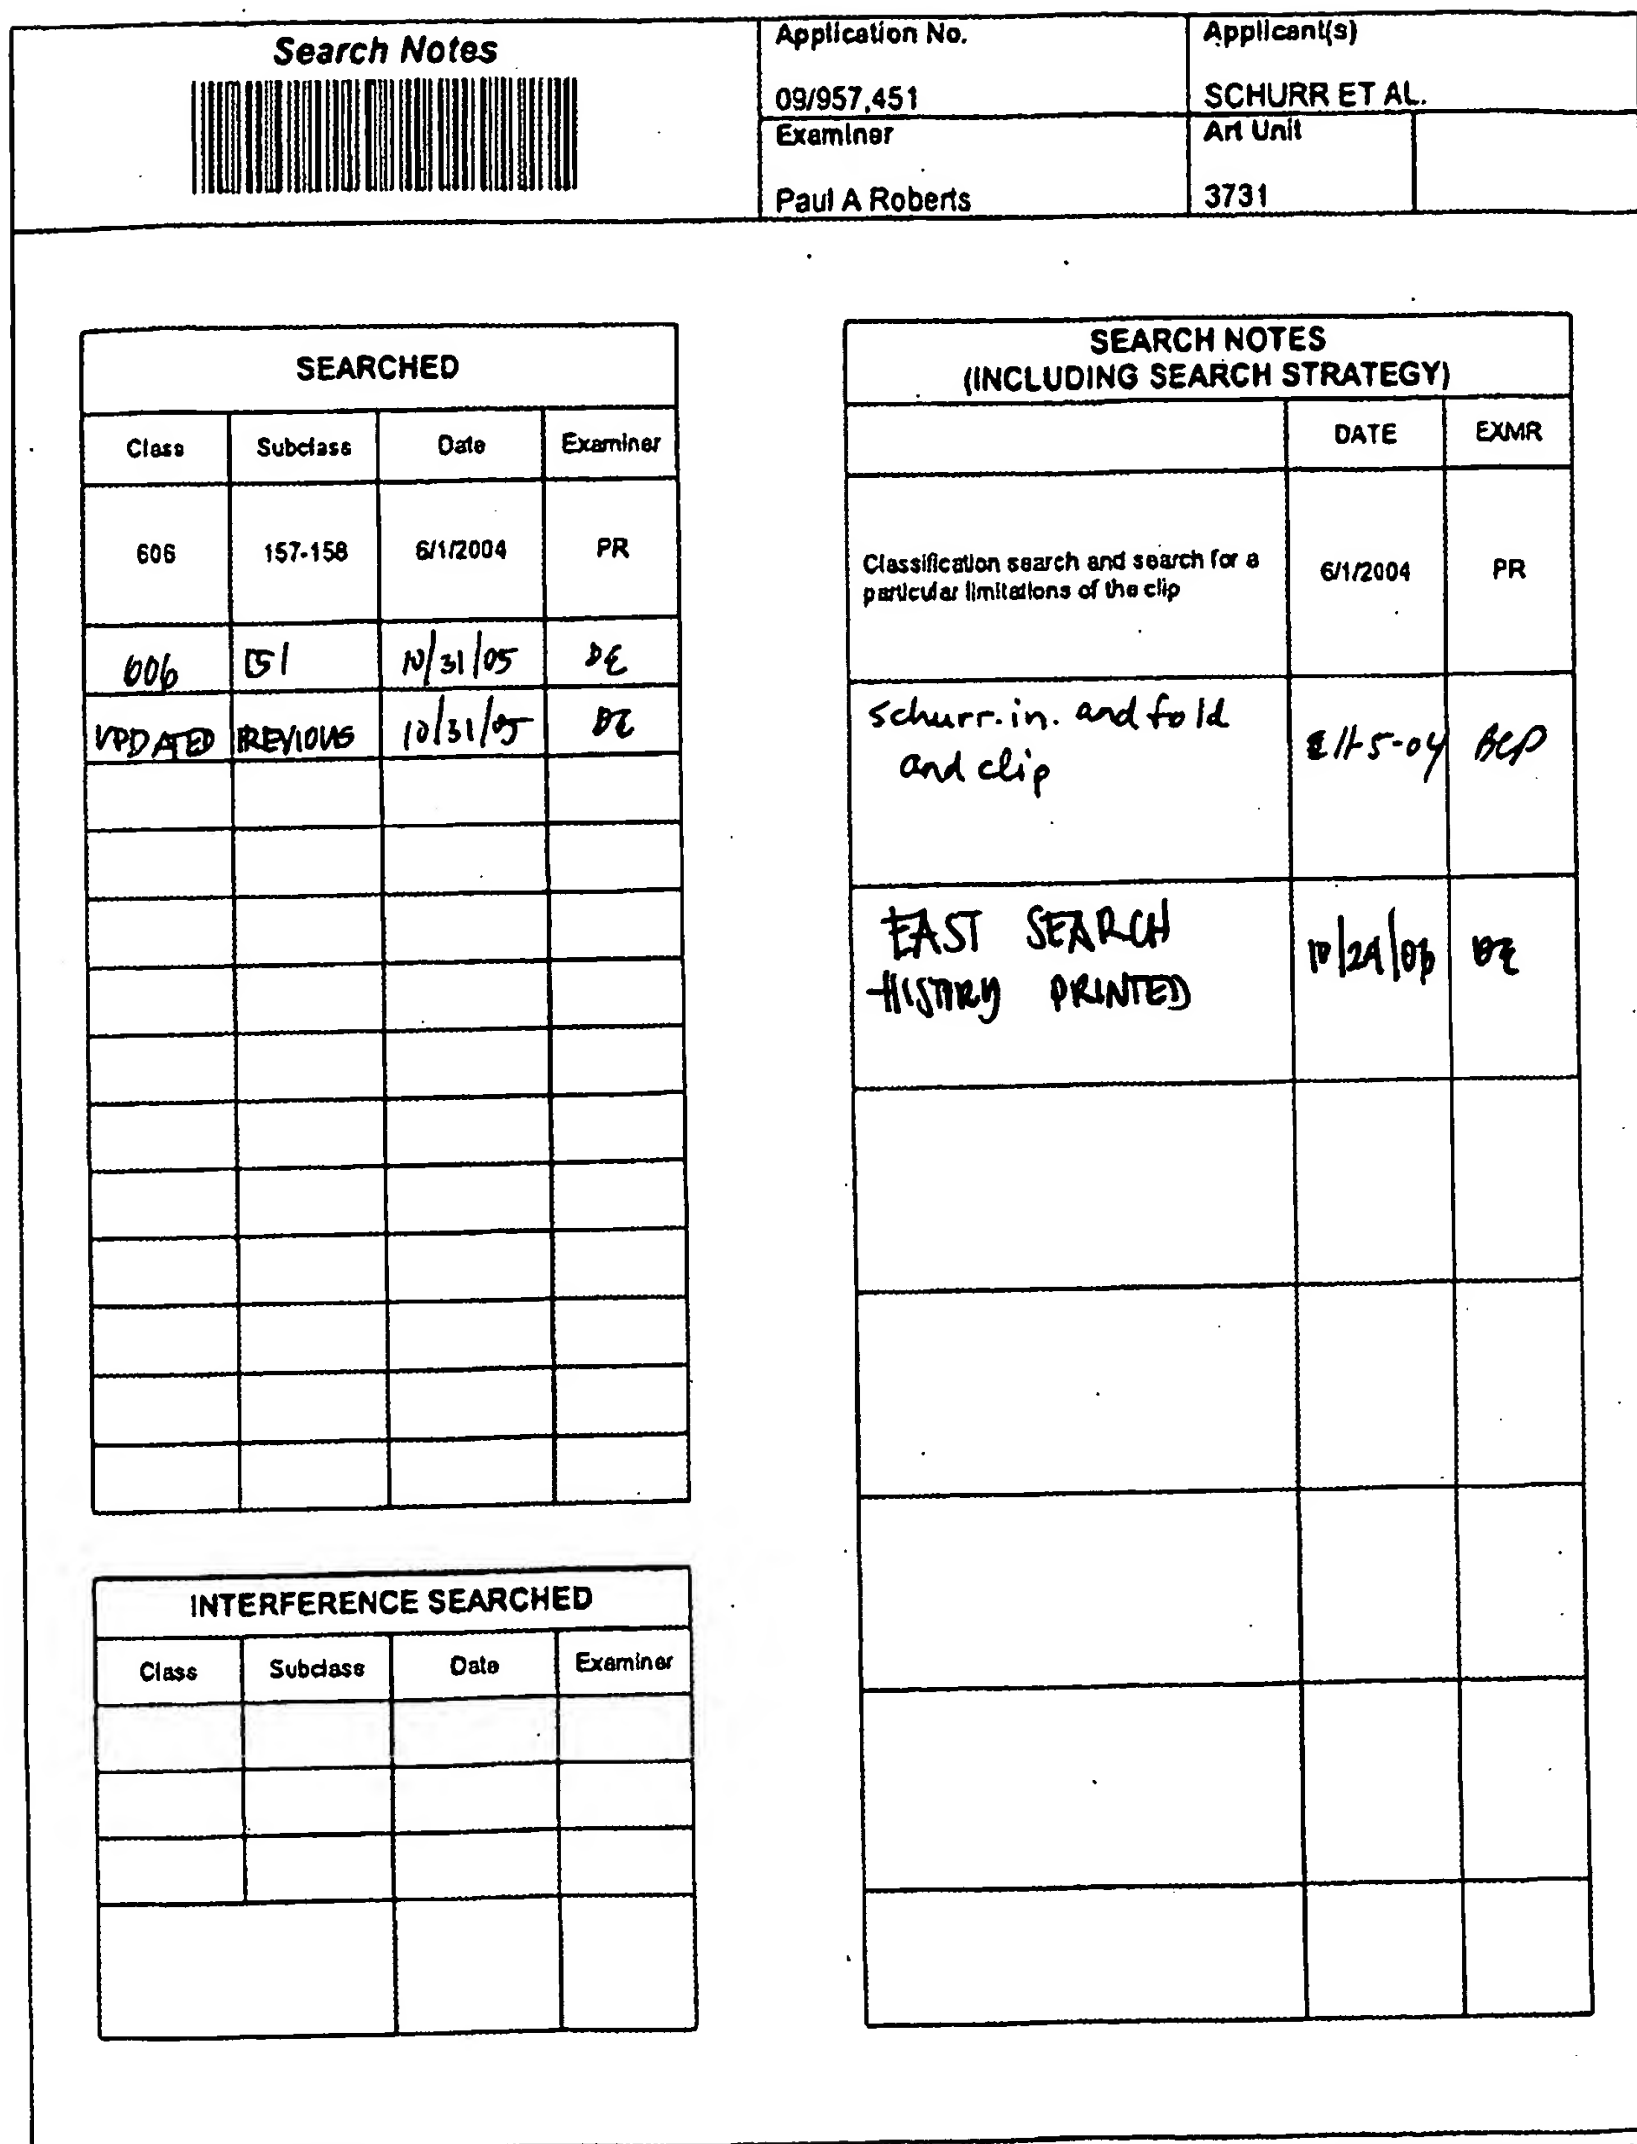 Search Notes
Application No.
09/957,451
Applicant(s)
SCHURR ET AL.
Examiner
Paul A Roberts
Art Unit
3731
SEARCHED
Class Subclass Date Examiner
606 157-158 6/1/2004 PR
606 151 10/31/05 DE
UPDATED PREVIOUS 10/31/05 DE
INTERFERENCE SEARCHED
Class Subclass Date Examiner
SEARCH NOTES
(INCLUDING SEARCH STRATEGY)
DATE EXMR
Classification search and search for a
particular limitations of the clip
6/1/2004 PR
schurr.in. and fold
and clip
EAST SEARCH
HISTORY PRINTED
DE